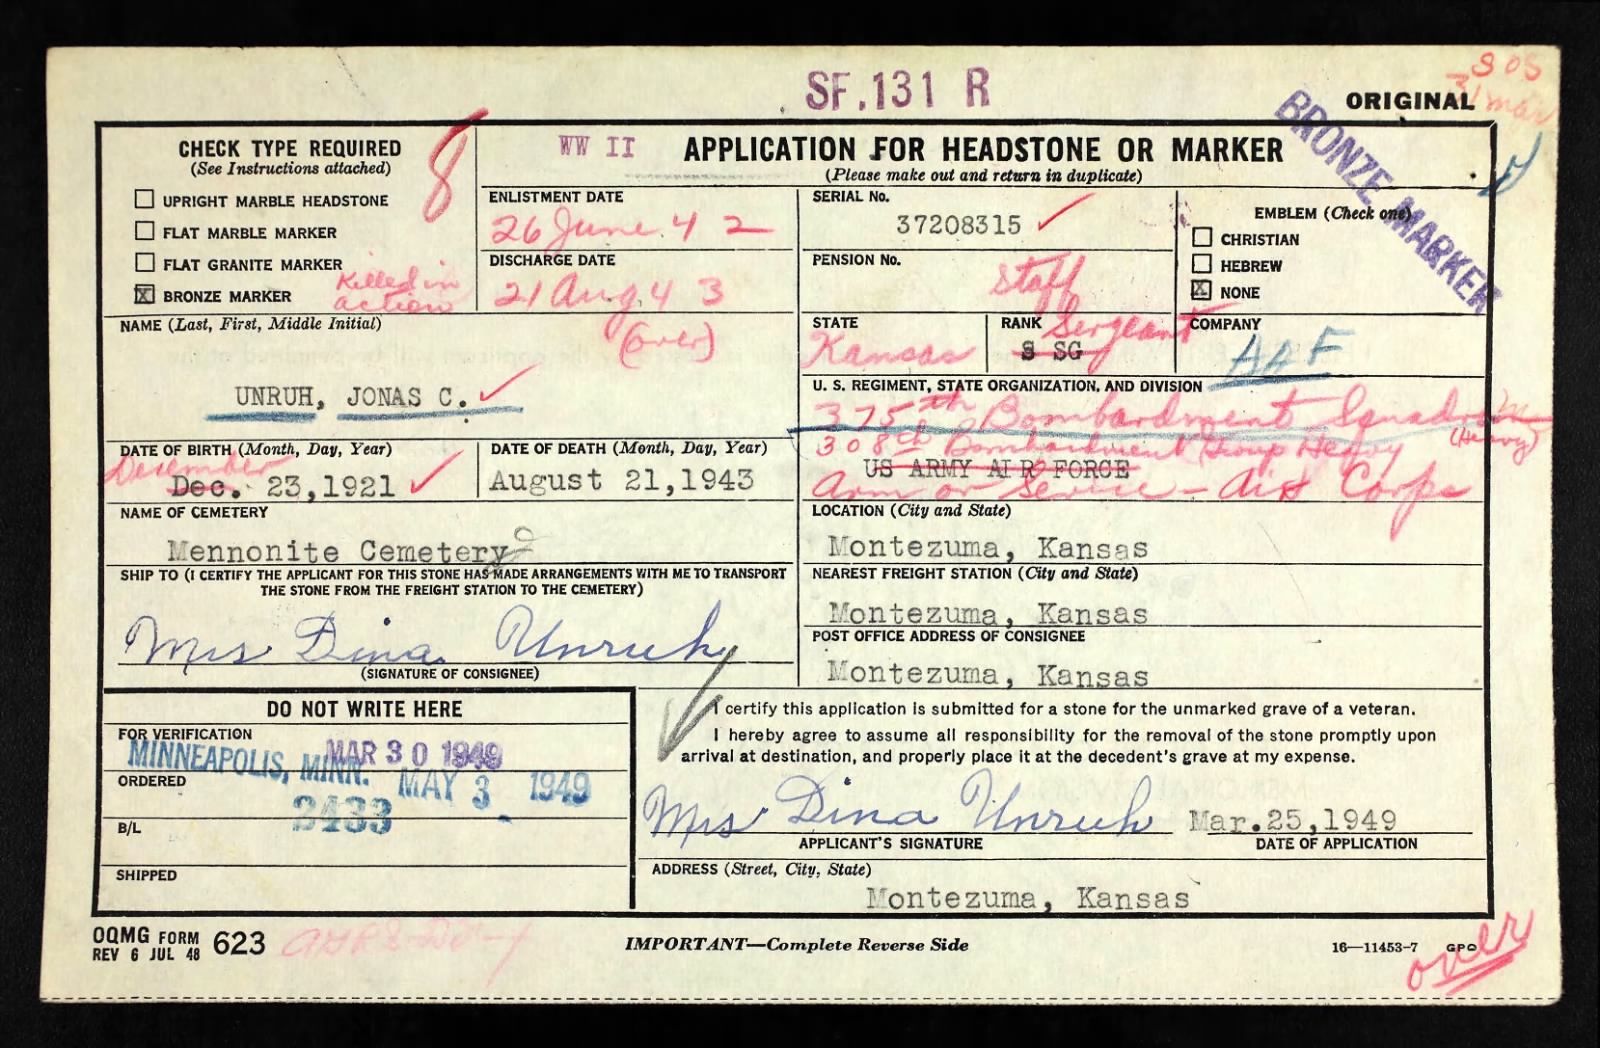 SF.131 R
ORIGINAL
31 Mar
BRONZE MARKER
CHECK TYPE REQUIRED
(See Instructions attached)
8
WW II
APPLICATION FOR HEADSTONE OR MARKER
(Please make out and return in duplicate)
UPRIGHT MARBLE HEADSTONE
FLAT MARBLE MARKER
FLAT GRANITE MARKER
X BRONZE MARKER
Killed in
action
ENLISTMENT DATE
26 June 42
DISCHARGE DATE
21 Aug 43
(over)
SERIAL No.
37208315
PENSION No.
EMBLEM (Check one)
CHRISTIAN
HEBREW
X NONE
NAME (Last, First, Middle Initial)
UNRUH, JONAS C.
STATE
Kansas
RANK
Staff
Sergeant
S SG
COMPANY
AAF
U. S. REGIMENT, STATE ORGANIZATION, AND DIVISION
375th Bombardment Squadron
(Heavy)
308th Bombardment Group Heavy
US ARMY AIR FORCE
Arm or Service - Air Corps
DATE OF BIRTH (Month, Day, Year)
December
Dec. 23,1921
DATE OF DEATH (Month, Day, Year)
August 21,1943
NAME OF CEMETERY
Mennonite Cemetery
LOCATION (City and State)
Montezuma, Kansas
SHIP TO (I CERTIFY THE APPLICANT FOR THIS STONE HAS MADE ARRANGEMENTS WITH ME TO TRANSPORT
THE STONE FROM THE FREIGHT STATION TO THE CEMETERY)
Mrs Dina Unruh
(SIGNATURE OF CONSIGNEE)
NEAREST FREIGHT STATION (City and State)
Montezuma, Kansas
POST OFFICE ADDRESS OF CONSIGNEE
Montezuma, Kansas
DO NOT WRITE HERE
FOR VERIFICATION
MINNEAPOLIS, MINN.
MAR 30 1949
ORDERED
MAY 3 1949
2433
B/L
SHIPPED
I certify this application is submitted for a stone for the unmarked grave of a veteran.
I hereby agree to assume all responsibility for the removal of the stone promptly upon
arrival at destination, and properly place it at the decedent's grave at my expense.
Mrs Dina Unruh
Mar.25,1949
APPLICANT'S SIGNATURE
DATE OF APPLICATION
ADDRESS (Street, City, State)
Montezuma, Kansas
OQMG FORM 623
REV 6 JUL 48
IMPORTANT—Complete Reverse Side
16—11453-7 GPO
over